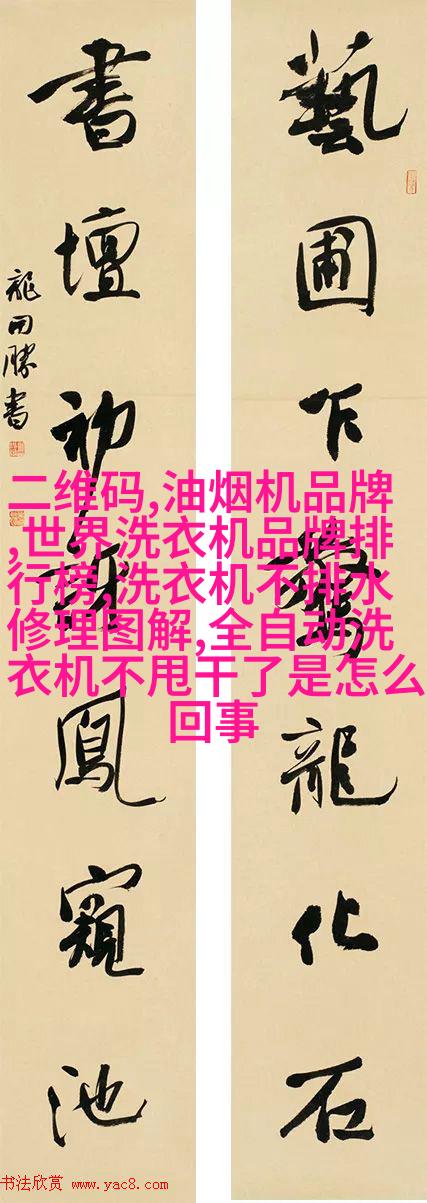 藝圃乍驚龍化石
書壇初鳳窺池
龍開勝書
二维码,油烟机品牌
,世界洗衣机品牌排
行榜,洗衣机不排水
修理图解,全自动洗
衣机不甩干了是怎么
回事
书法欣赏 www.yac8.com